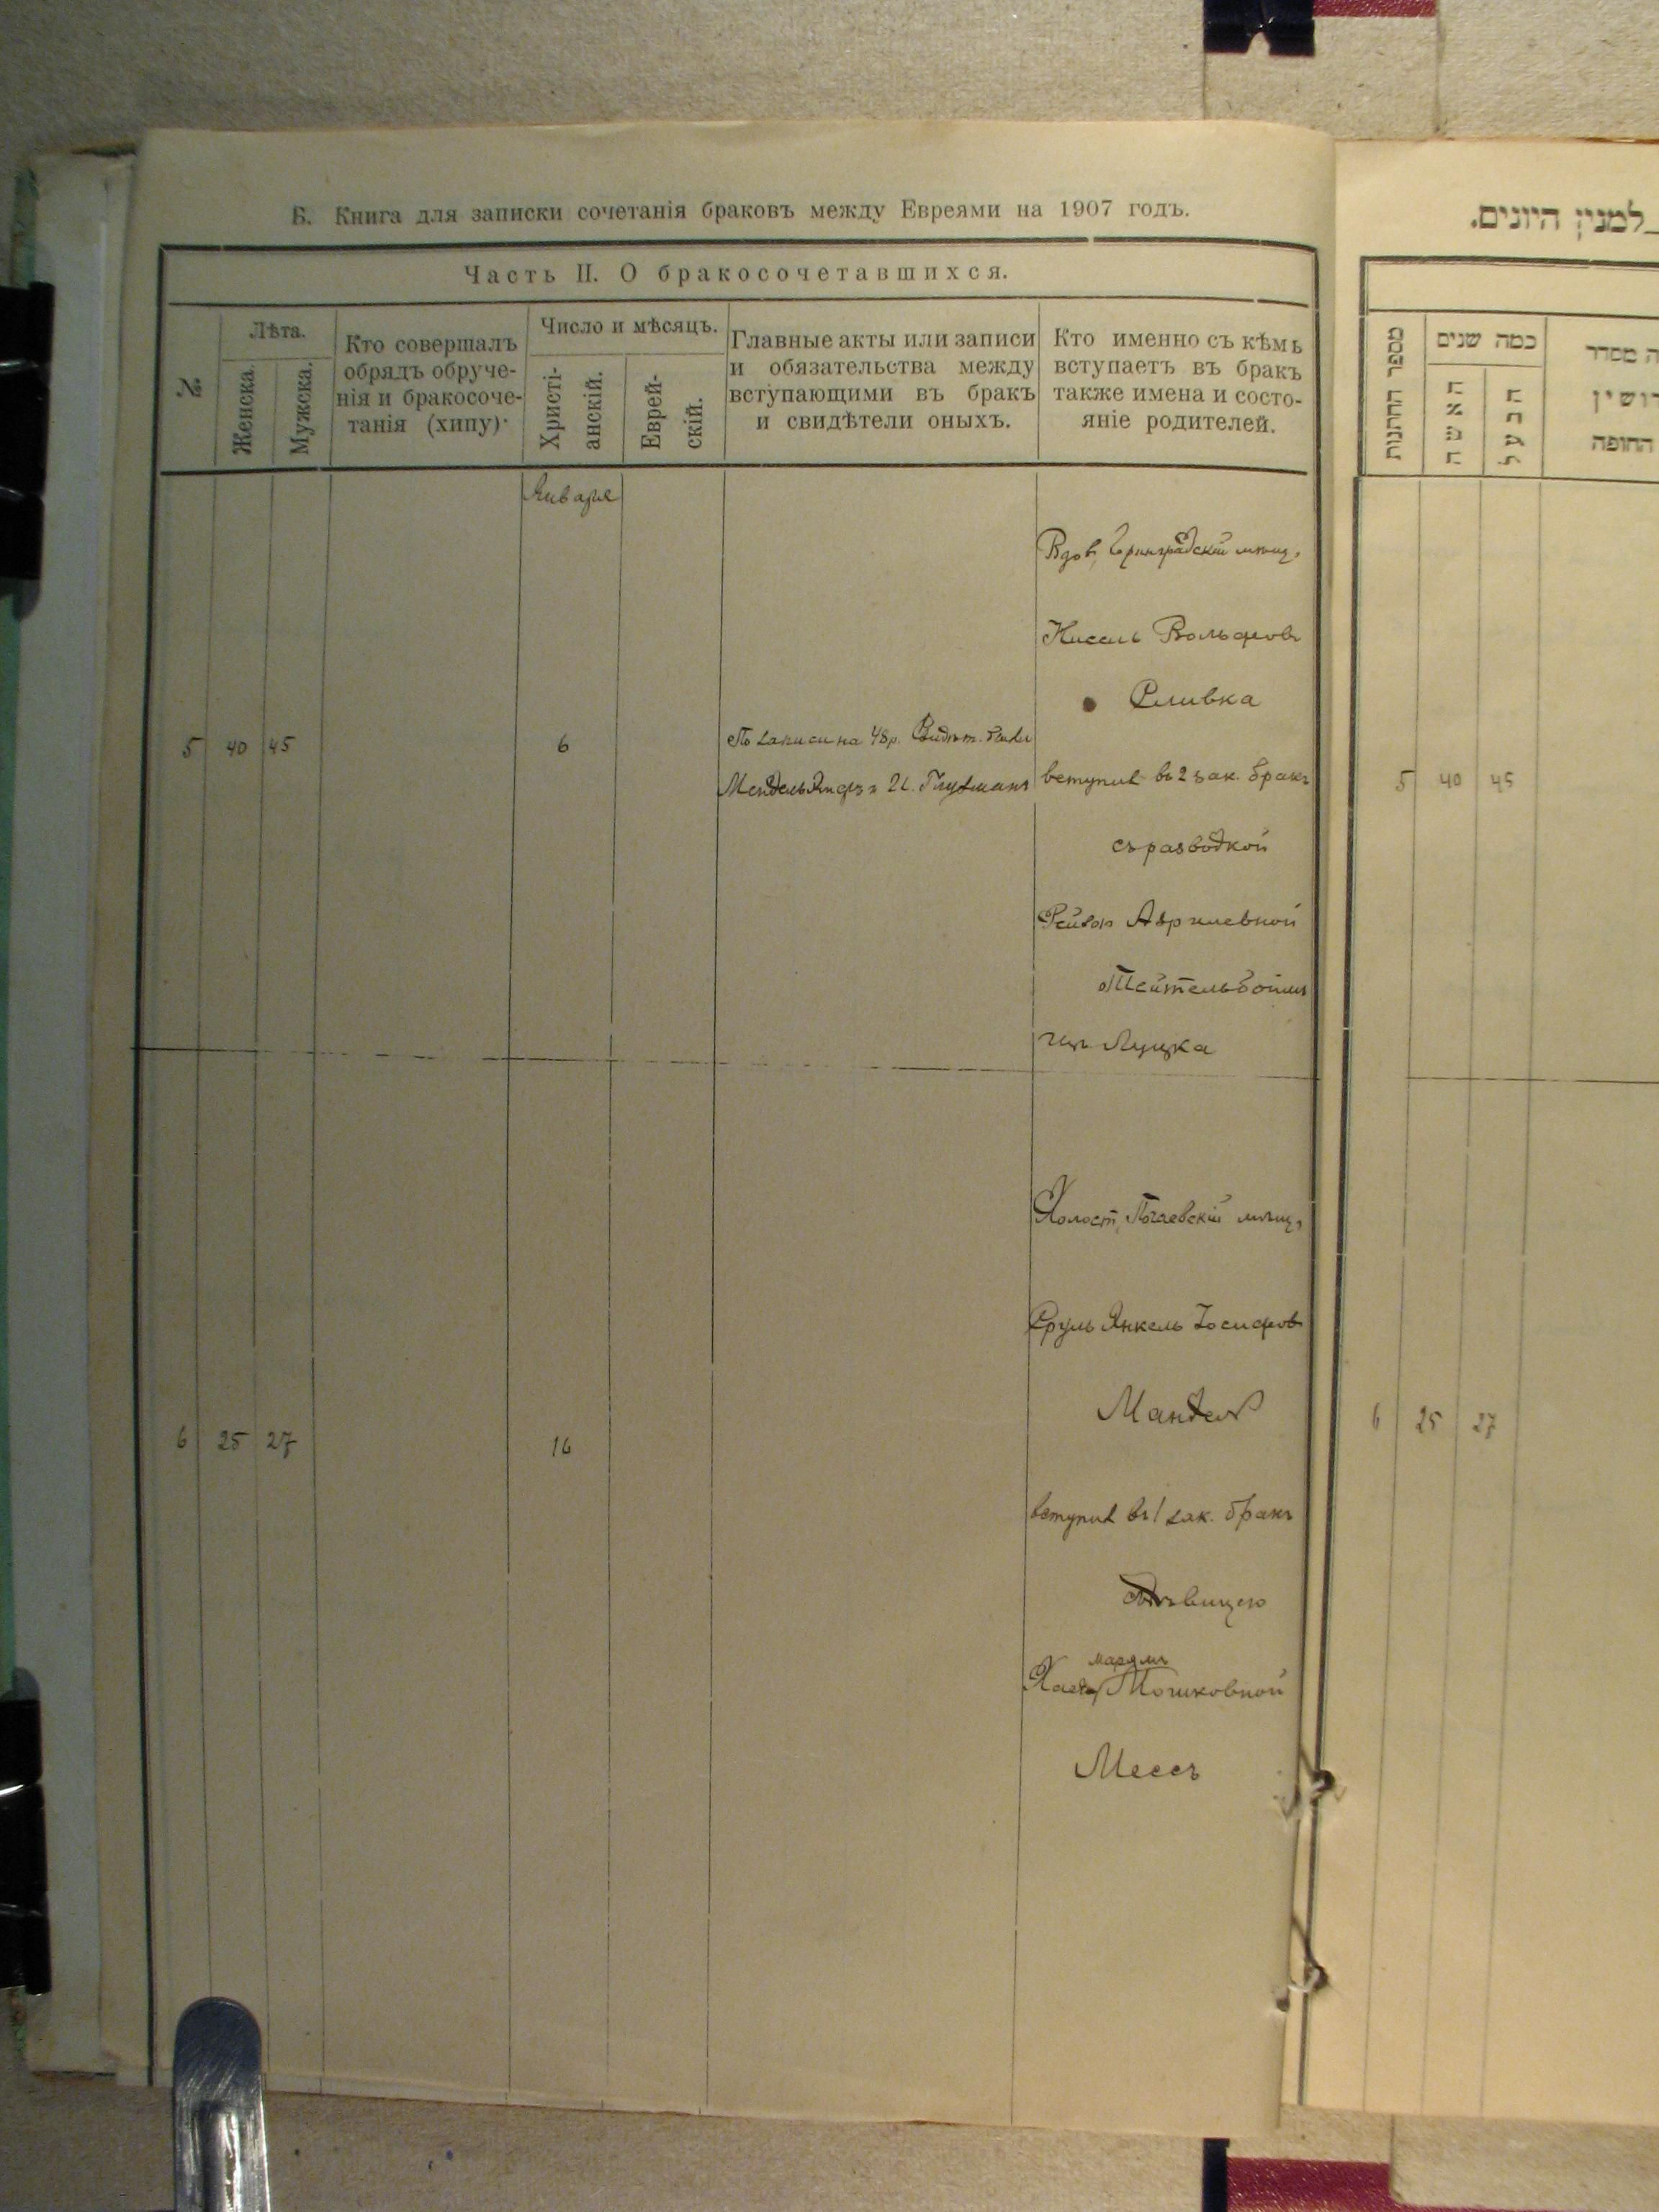 Б. Книга для записки сочетанія браковъ между Евреями на 1907 годъ.
Часть II. О бракосочетавшихся.
№
Лѣта.
Женска.
Мужска.
Кто совершалъ
обрядъ обруче-
нія и бракосоче-
танія (хипу).
Число и мѣсяцъ.
Христі-
анскій.
Еврей-
скій.
Главные акты или записи
и обязательства между
вступающими въ бракъ
и свидѣтели оныхъ.
Кто именно съ кѣмъ
вступаетъ въ бракъ
также имена и состо-
яніе родителей.
Января
5 40 45
6
По записи на 48 р.
Мендель
Вдов,
Кисель Вольфовъ
Сливка
вступил въ 2 зак. бракъ
съ разводкой
Рейзою
Тейтельбоймъ
изъ Луцка
6 25 27
16
Холост, Почаевскій мѣщ.
Сруль Янкель Іосифовъ
Мандель
вступил въ 1 зак. бракъ
дѣвицею
Марямъ
Мошковной
Мессъ
למנין היונים.
מספר החתונות
כמה שנים
האשה
הבעל
מסדר
החופה
5 40 45
6 25 27